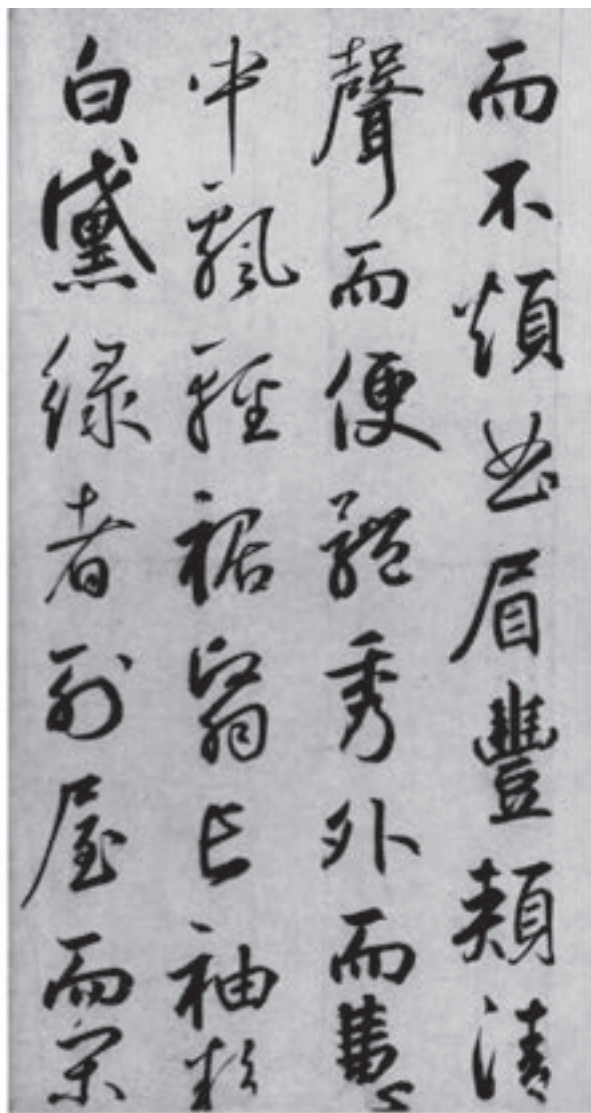 而不煩曲眉豐頰清
聲而便體秀外而慧
中飄輕裾翳長袖粉
白黛綠者列屋而閑